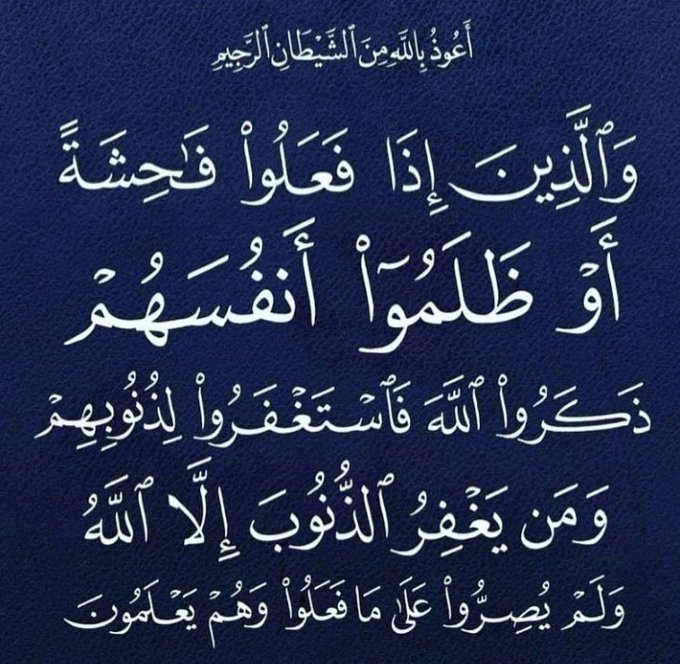 أَعُوذُ بِاللَّهِ مِنَ ٱلشَّيْطَانِ ٱلرَّجِيمِ
وَٱلَّذِينَ إِذَا فَعَلُوا۟ فَـٰحِشَةً
أَوْ ظَلَمُوٓا۟ أَنفُسَهُمْ
ذَكَرُوا۟ ٱللَّهَ فَٱسْتَغْفَرُوا۟ لِذُنُوبِهِمْ
وَمَن يَغْفِرُ ٱلذُّنُوبَ إِلَّا ٱللَّهُ
وَلَمْ يُصِرُّوا۟ عَلَىٰ مَا فَعَلُوا۟ وَهُمْ يَعْلَمُونَ